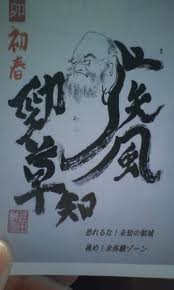 卯
初春
疾風
知
勁草
恐れるな!未知の領域
挑め!未体験ゾーン